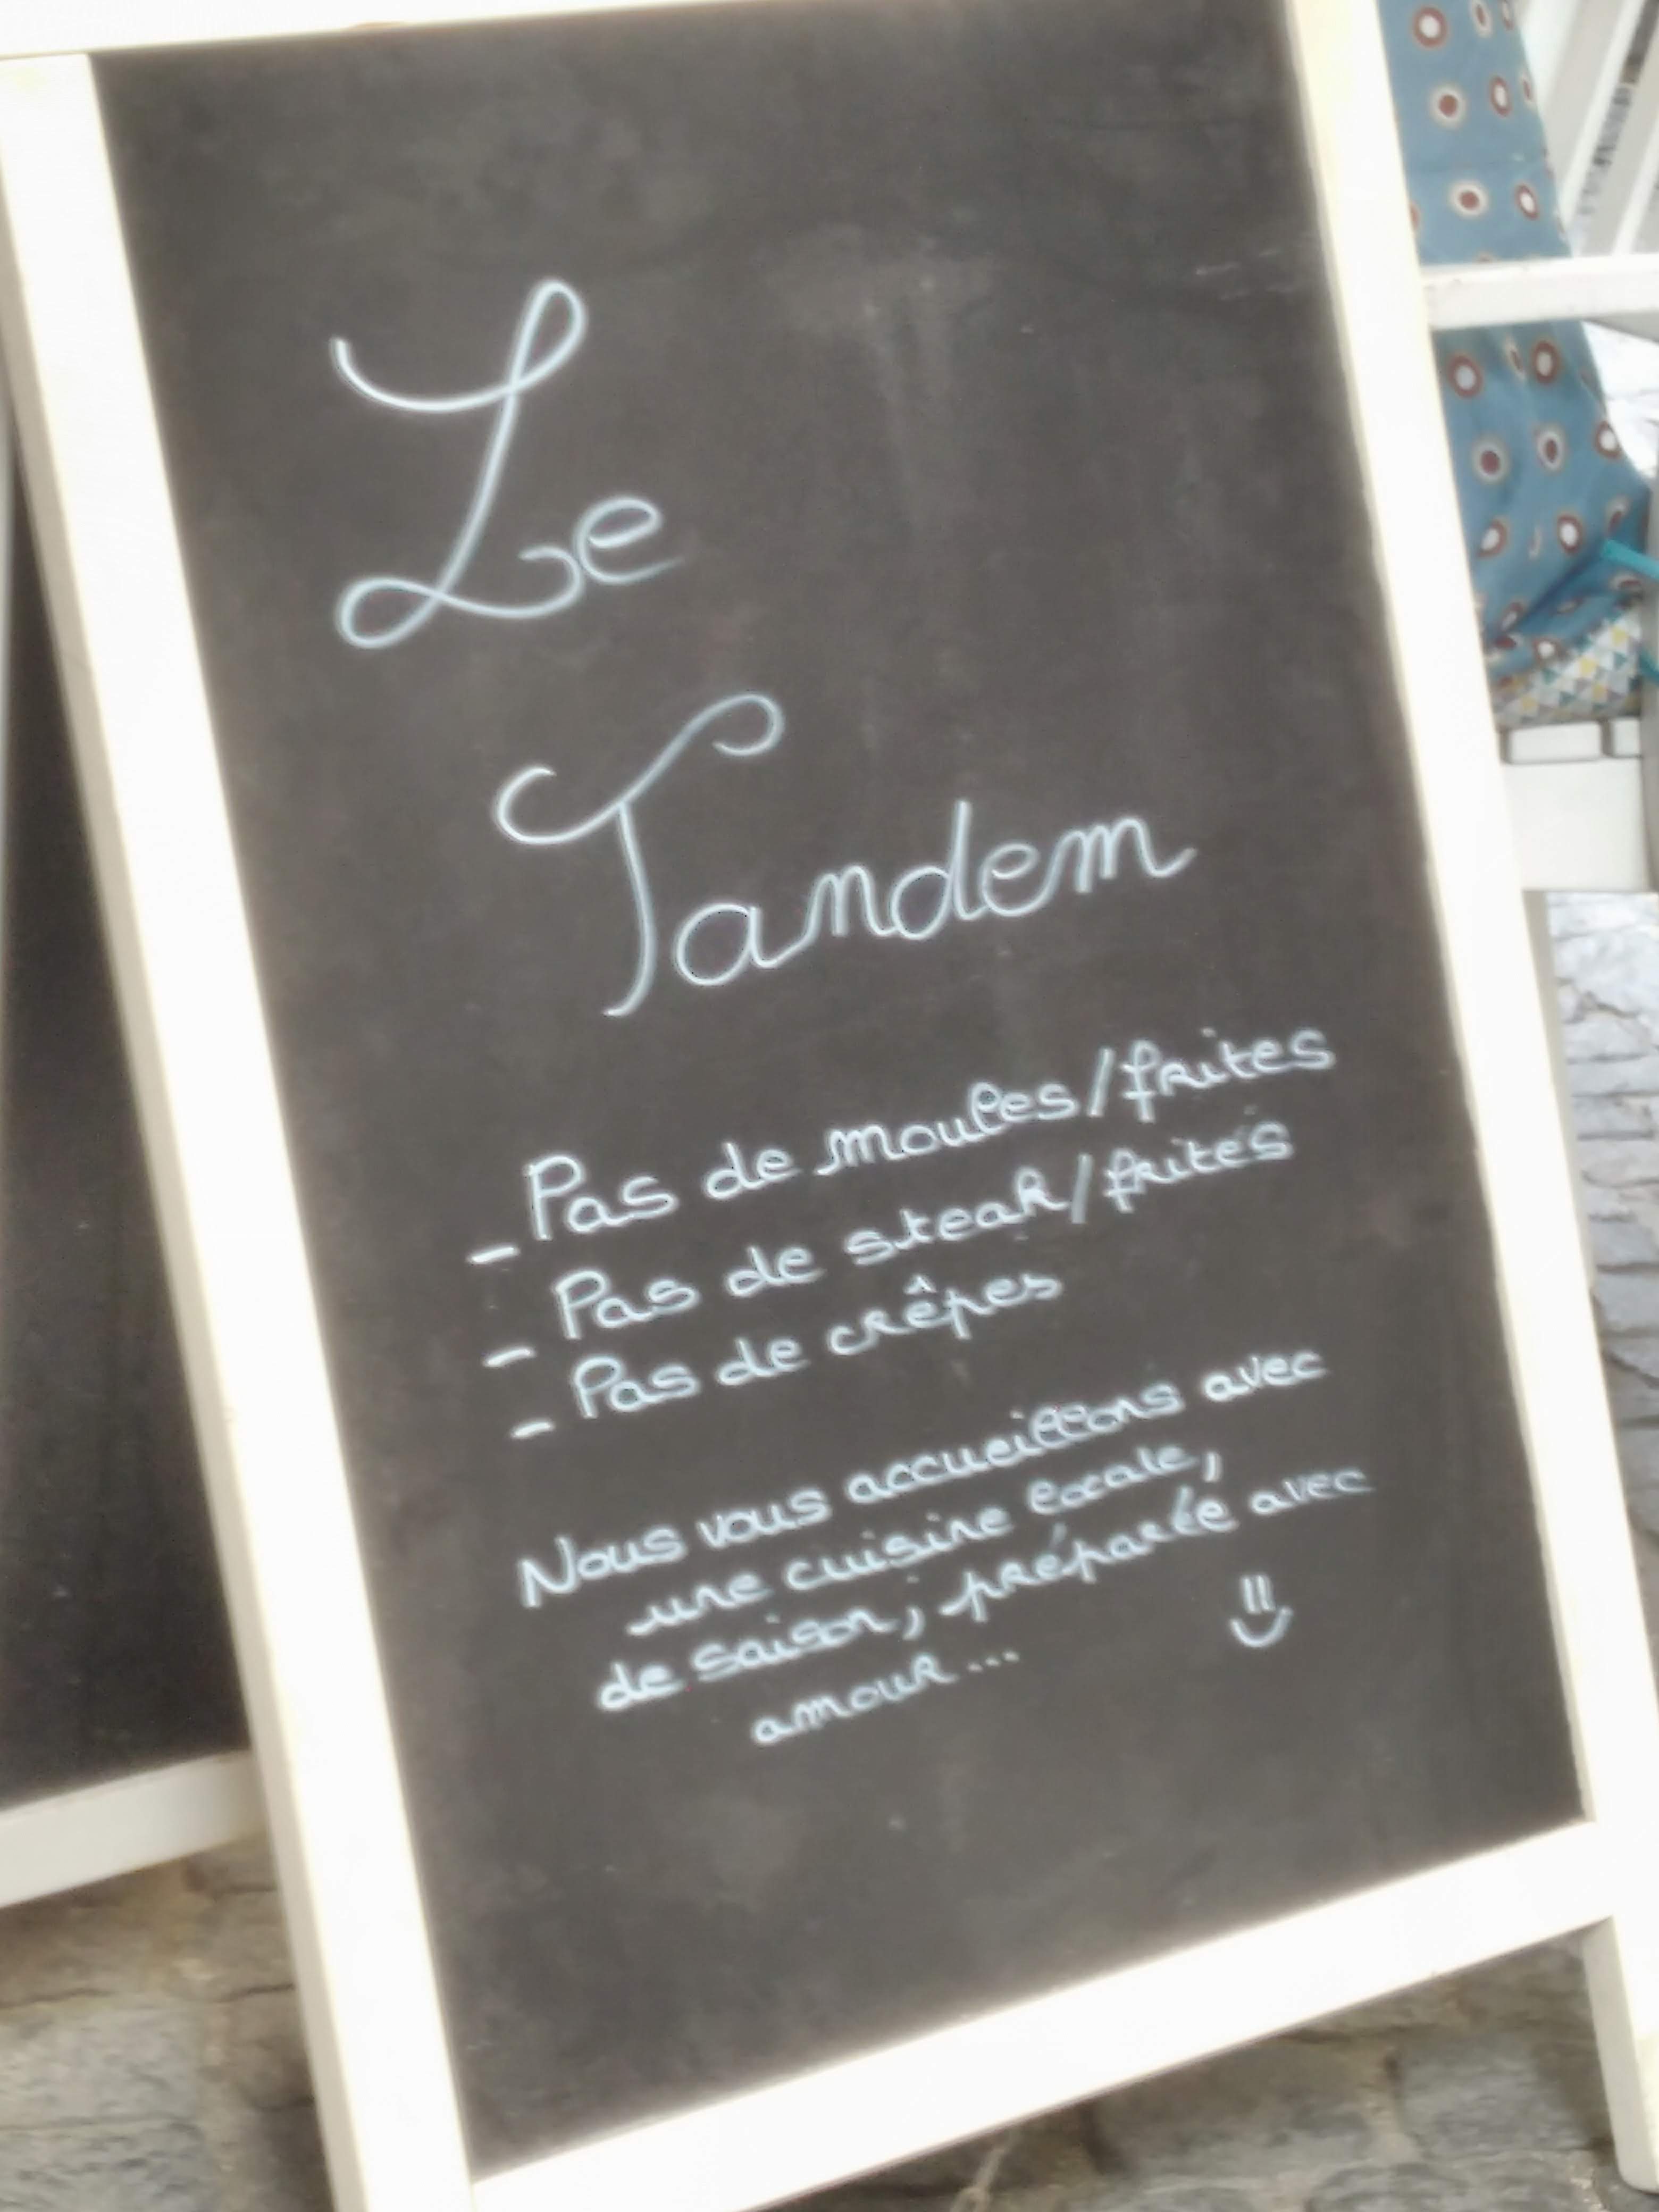 Le
Tandem
- Pas de moules/frites
- Pas de steak/frites
- Pas de crêpes
Nous vous accueillons avec
une cuisine locale,
de saison, préparée avec
amour...